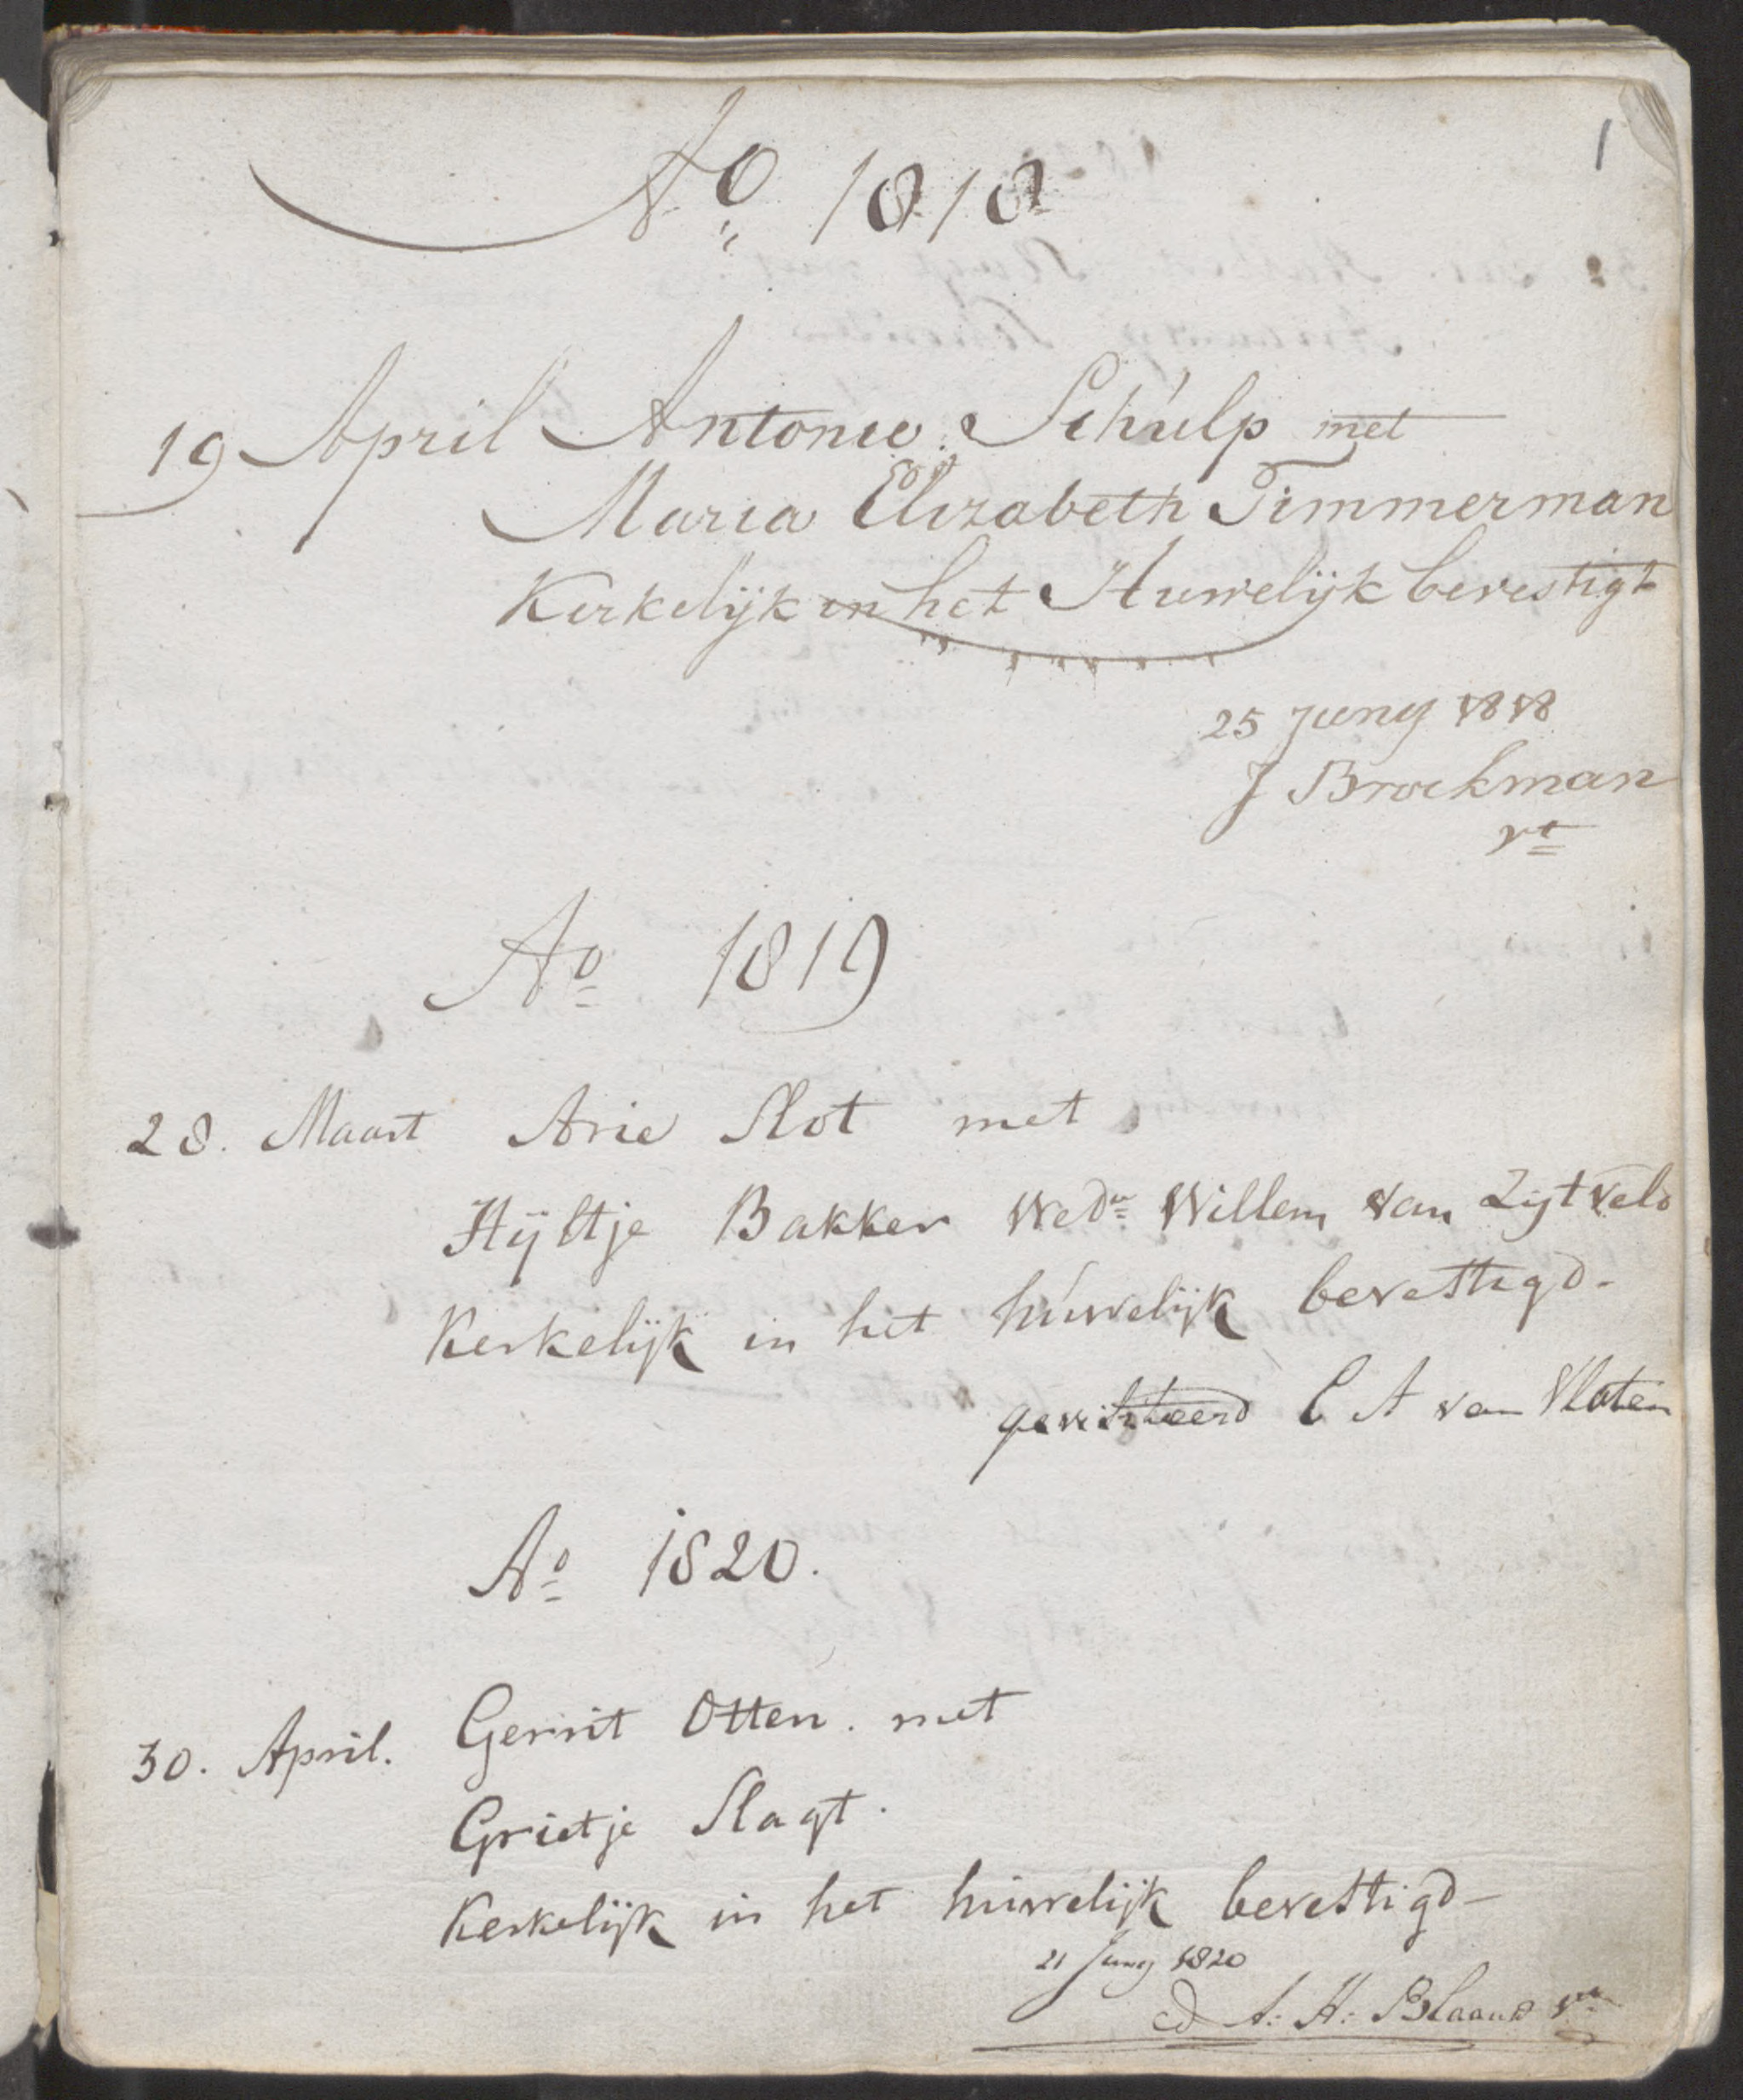 1
Ao 1818
19 April Antonie Schulp met
Maria Elizabeth Timmerman
Kerkelijk in het Huwelijk bevestigt
25 Juny 1818
J Broekman
vt
Ao 1819
28. Maart Arie Slot met
Hyltje Bakker Wedu Willem van Zijtveld
Kerkelijk in het húwelijk bevestigd-
gevisiteerd C A van Vloten
Ao 1820.
30. April. Gerrit Otten. met
Grietje Slagt.
Kerkelijk in het huwelijk bevestigd-
21 Juny 1820
A: H: Blaauw